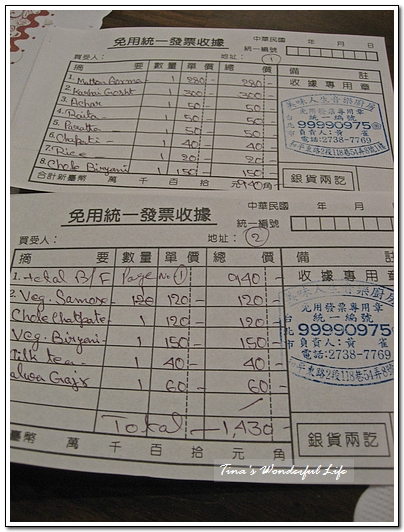 免用統一發票收據
中華民國 年 月 日
統一編號
買受人： 地址： ①
摘要 數量 單價 總價 備註
1. Mutton 1 280 - 280 -
2. Karhai Gosht 1 300 - 300 -
3. Achar 1 50 - 50 -
4. Raita 1 50 - 50 -
5. Paratta 1 50 - 50 -
6. Chapati 1 40 - 40 -
7. Rice 1 20 - 20 -
8. Chole Biryani 1 150 - 150 -
合計新臺幣 萬 千 百 拾 元 940 角
收據專用章
免用發票專用章
統一編號
99990975
負責人：黃雀
電話：2738-7769
和平東路2段118巷54弄8號
銀貨兩訖
免用統一發票收據
中華民國 年 月 日
統一編號
買受人： 地址： ②
摘要 數量 單價 總價 備註
1. total B/F Page No ① 940 -
2. Veg. Samosa 120 - 120 -
Chole Chatpate 1 120 - 120 -
Veg. Biryani 1 150 - 150 -
Milk tea 1 40 - 40 -
1 60 - 60 -
Total - 1,430 -
臺幣 萬 千 百 拾 元 角
收據專用章
免用發票專用章
統一編號
99990975
負責人：黃雀
電話：2738-7769
和平東路2段118巷54弄8號
銀貨兩訖
Tina's Wonderful Life